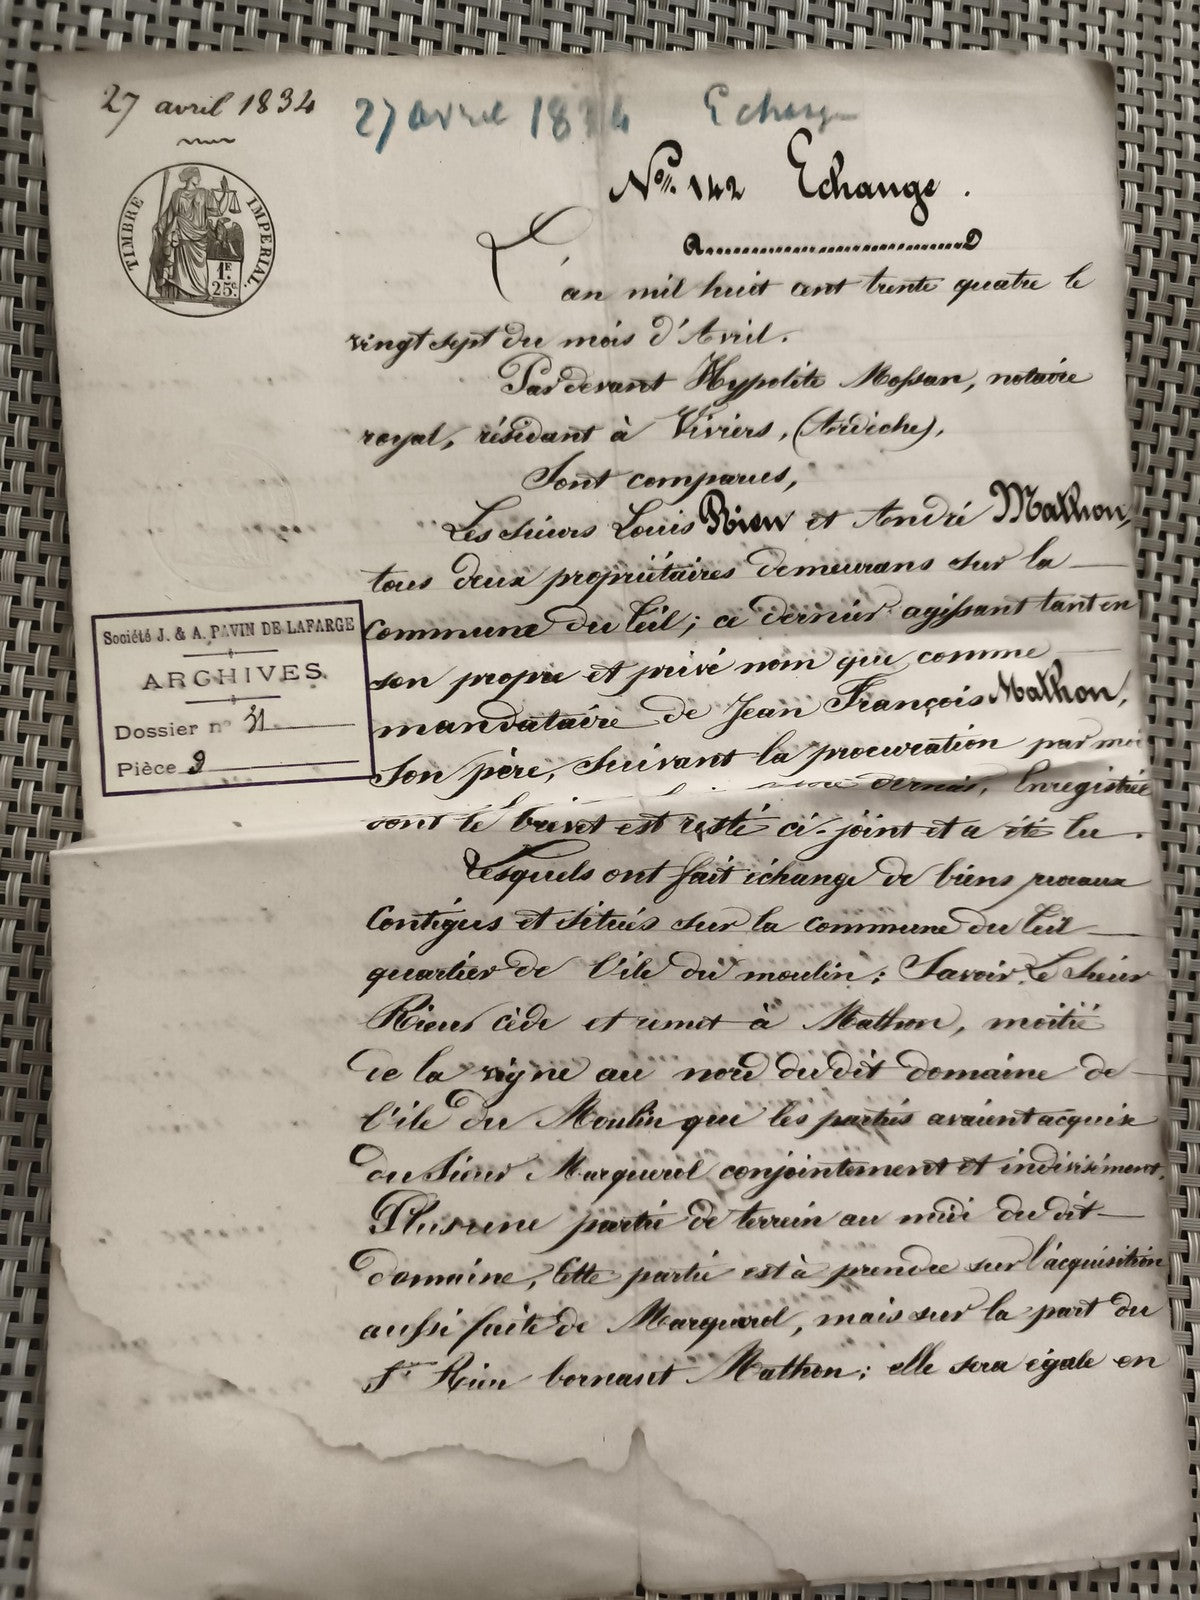 27 avril 1834
27 avril 1834 Echange
TIMBRE IMPERIAL.
1F.
25c.
No. 142 Echange.
L'an mil huit cent trente quatre le
vingt sept du mois d'Avril.
Pardevant Hypolite Mossan, notaire
royal, résidant à Viviers, (Ardèche),
Sont comparus,
Les sieurs Louis Rieu et André Mathon,
tous deux propriétaires demeurans sur la
commune du Teil; ce dernier agissant tant en
son propre et privé nom que comme
mandataire de Jean François Mathon,
son père, suivant la procuration par moi
dernier, Enregistrée
dont le brevet est resté ci-joint et a été lu.
Lesquels ont fait échange de biens ruraux
contigus et situés sur la commune du Teil
quartier de l'ile du moulin; Savoir, Le Sieur
Rieu cède et remet à Mathon, moitié
de la vigne au nord du dit domaine de
l'ile du Moulin que les parties avaient acquis
du Sieur Marquerol conjointement et indivisément,
Plus une partie de terrein au midi du dit
domaine, Cette partie est à prendre sur l'acquisition
aussi faite de Marquerol, mais sur la part du
Sr Rieu bornant Mathon; elle sera égale en
Société J. & A. PAVIN DE LAFARGE
ARCHIVES.
Dossier n° 31
Pièce 9